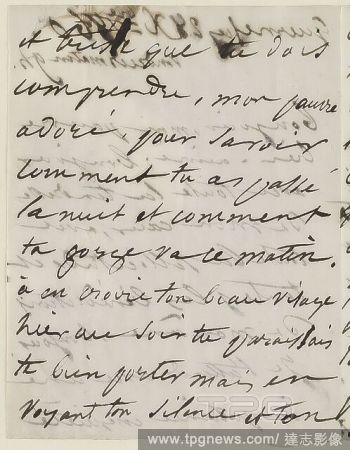 et triste que tu dois
comprendre, mon pauvre
adoré, pour savoir
comment tu as passé
la nuit et comment
ta gorge va ce matin.
à en croire ton beau visage
hier au soir tu paraissais
te bien porter mais en
voyant ton silence et ton
TPG
www.tpgnews.com／達志影像